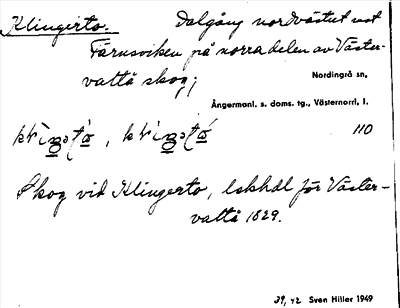 Klingerto. Dalgång nordvästut mot
Färnsviken på norra delen av Väster-
vattå skog;
Nordingrå sn,
Ångermanl. s. doms. tg., Västernorrl. l.
110
Skog vid Klingerto, lskhdl för Väster-
vattå 1829.
39, 42 Sven Hiller 1949